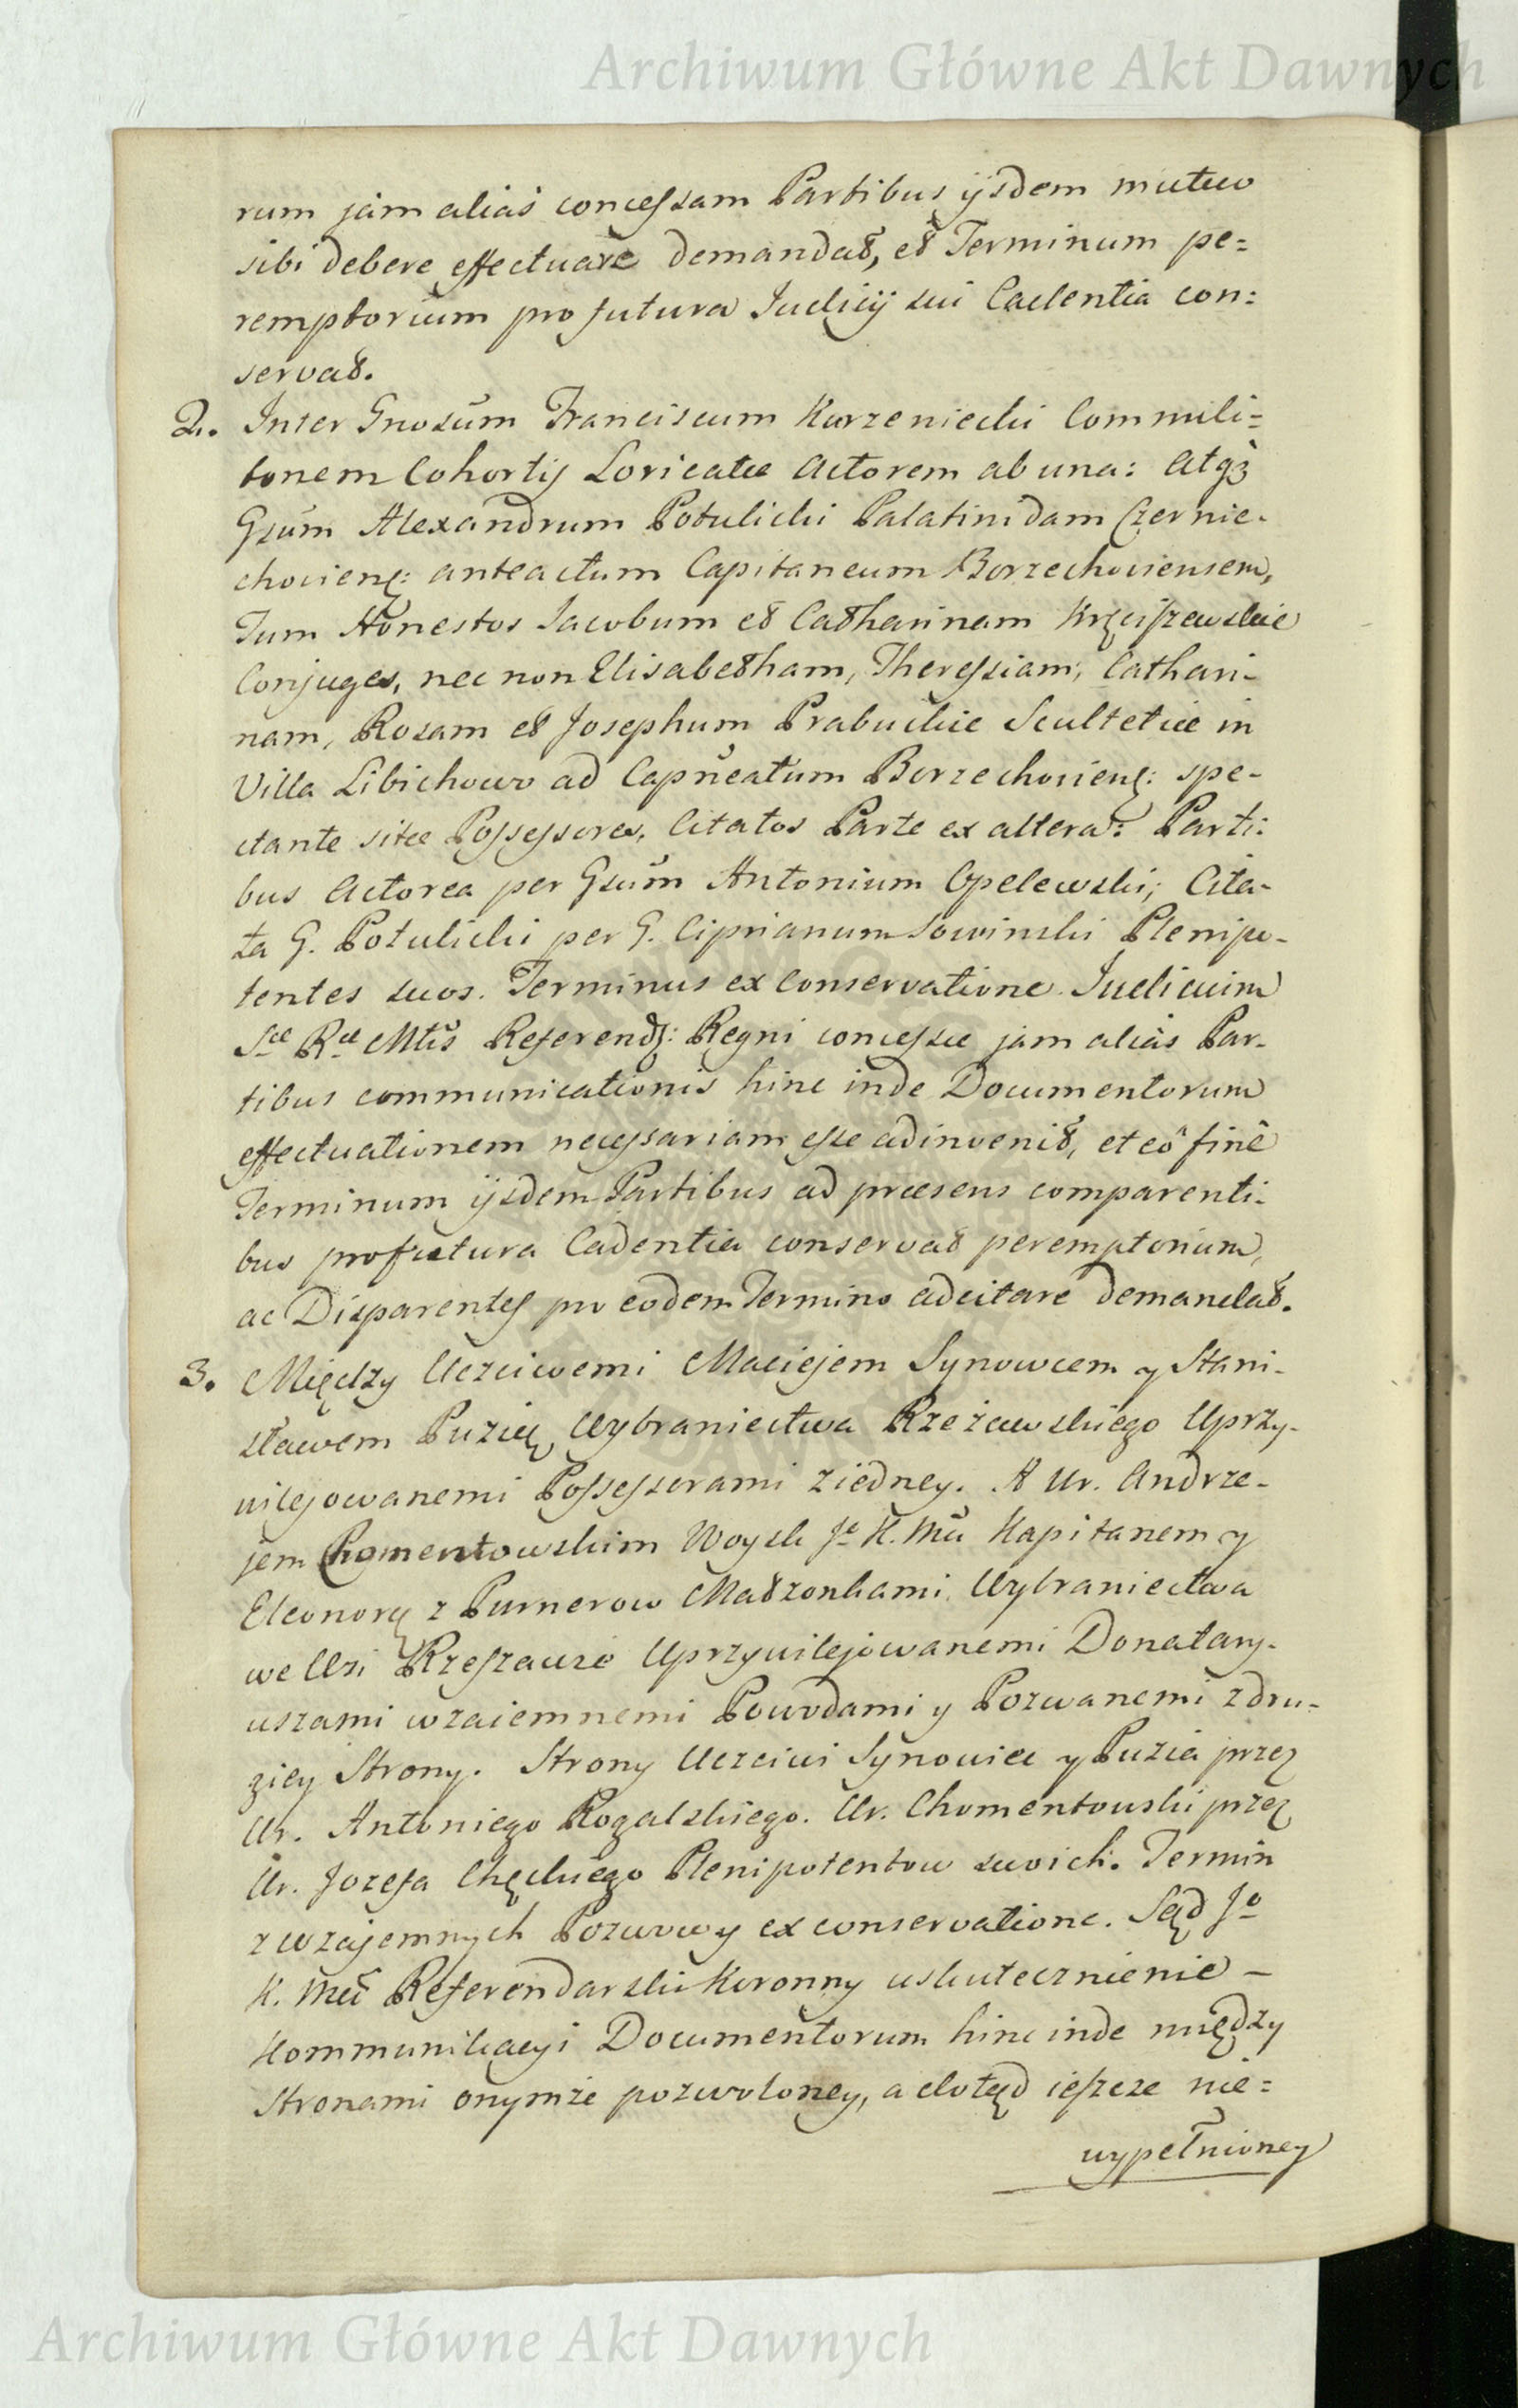 Archiwum Główne Akt Dawnych
rum jam alias concessam Partibus ijsdem mutuo
sibi debere effectuare demandat, et Terminum pe=
remptorium pro futura Judicij sui Cadentia con=
servat.
2. Inter Gnosum Franciscum Korzeniecki Commili=
tonem Cohortis Loricatæ Actorem ab una: Atqz
Gsum Alexandrum Potulicki Palatinidam Czernie-
choviens: anteactum Capitaneum Borzechoviensem,
Tum Honestos Jacobum et Catharinam Kręciszewskie
Conjuges, nec non Elisabetham, Theressiam, Cathari-
nam, Rosam et Josephum Prabuckie Scultetiæ in
Villa Libichowo ad Capneatum Borzechoviens: spe-
ctante sitæ Possessores, Citatos Parte ex altera: Parti:
bus Actorea per Gsum Antonium Opelewski; Cita-
ta G. Potulicki per G. Ciprianum Sowinski Plenipo-
tentes suos. Terminus ex conservatione. Judicium
Sæ Ræ Mtis Referend: Regni concessæ jam alias Par-
tibus communicationis hinc inde Documentorum
effectuationem necessariam esse adinvenit, et eo fine
Terminum ijsdem Partibus ad præsens comparenti-
bus pro futura Cadentia conservat peremptorium,
ac Disparentes pro eodem Termino adcitare demandat.
3. Między Uczciwemi Maciejem Synowcem y Stani-
sławem Puzią Wybraniectwa Rzeżawskiego Uprzy-
wilejowanemi Possessorami z iedney. A Ur. Andrze-
jem Chomentowskim Woysk Jo K. Mci Kapitanem y
Eleonorą z Purnerow Małżonkami Wybraniectwa
we Wsi Rzeszawie Uprzywilejowanemi Donatary-
uszami wzaiemnemi Powodami y Pozwanemi z dru-
giey Strony. Strony Uczciwi Synowiec y Puzia przez
Ur. Antoniego Rogalskiego. Ur. Chomentowski przez
Ur. Jozefa Chęckiego Plenipotentow swoich. Termin
z wzajemnych Pozwowy ex conservatione. Sąd Jo
K. Mci Referendarski Koronny uskutecznienie –
Kommunikacyi Documentorum hinc inde między
Stronami onymże pozwoloney, a dotąd ieszcze nie=
wypełnioney
Archiwum Główne Akt Dawnych